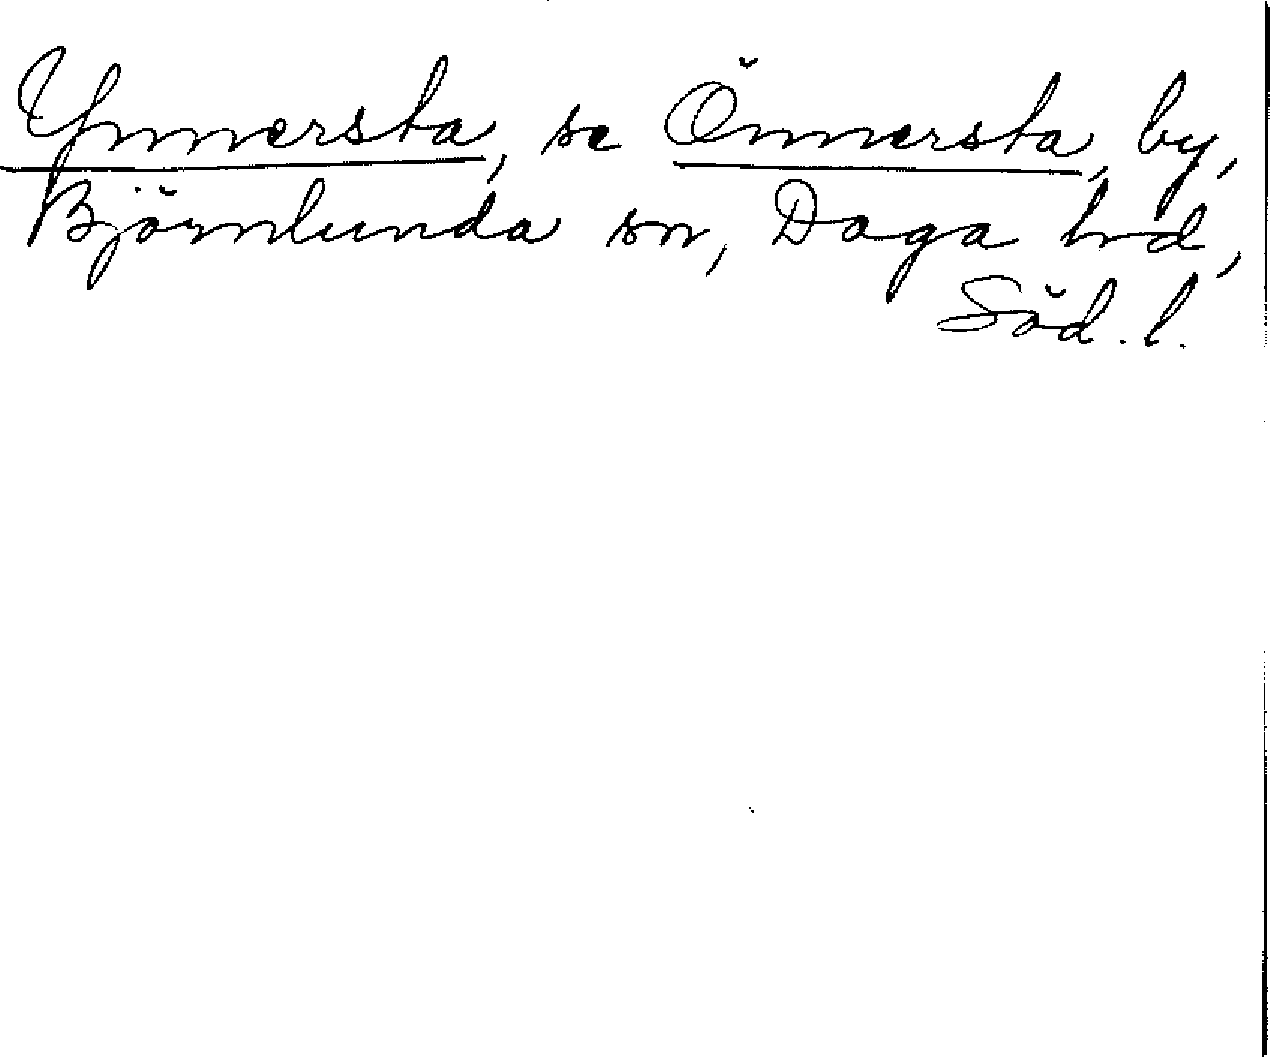 Ynnersta, se Önnersta, by,
Björnlunda sn, Daga hd,
Söd. l.